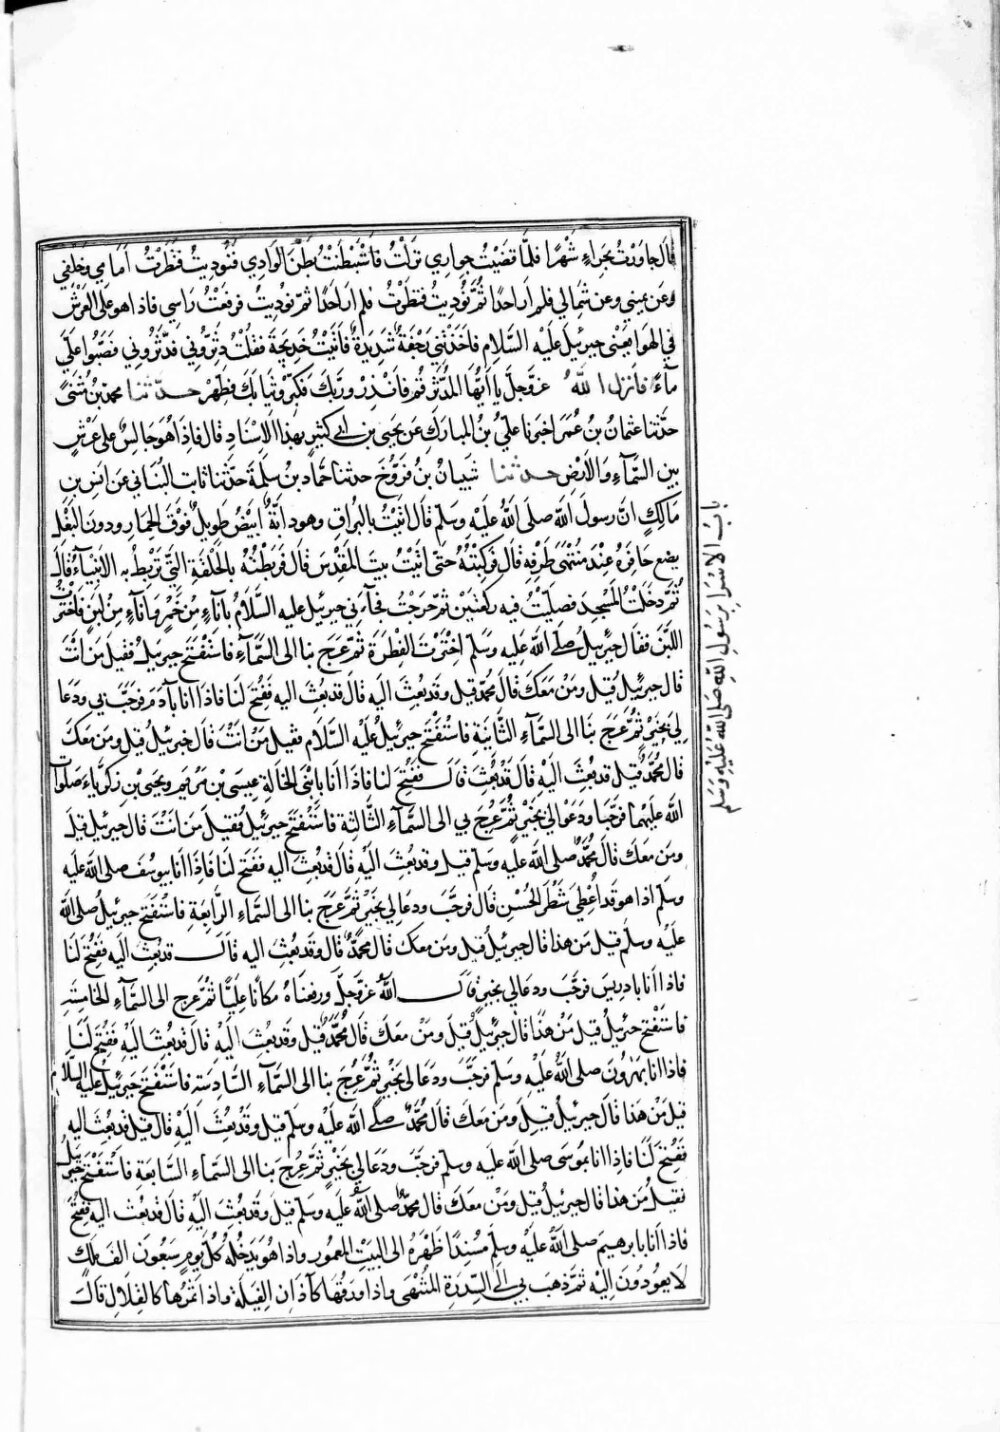 قال جاورت بحراء شهرا فلما قضيت جواري نزلت فاستبطنت بطن الوادي فنوديت فنظرت أمامي وخلفي
وعن يميني وعن شمالي فلم ار احدا ثم نوديت فنظرت فلم ار احدا ثم نوديت فرفعت راسي فاذا هو على العرش
في الهوا يعنى جبرئيل عليه السلام فاخذتني رجفة شديدة فاتيت خديجة فقلت دثروني فدثروني فصبوا علي
مآء فانزل الله عز وجل يا ايها المدثر قم فانذر وربك فكبر وثيابك فطهر حدثنا محمد بن مثنى
حدثنا عثمان بن عمر اخبرنا علي بن المبارك عن يحيى بن ابي كثير بهذا الاسناد قال فاذا هو جالس على عرش
بين السمآء والارض حدثنا شيبان بن فروخ حدثنا حماد بن سلمة حدثنا ثابت البناني عن انس بن
مالك ان رسول الله صلى الله عليه وسلم قال اتيت بالبراق وهو دابة ابيض طويل فوق الحمار ودون البغل
يضع حافره عند منتهى طرفه قال فركبته حتى اتيت بيت المقدس قال فربطته بالحلقة التي تربط به الانبيآء قال
ثم دخلت المسجد فصليت فيه ركعتين ثم خرجت فجآءني جبرئيل عليه السلام بانآء من خمر وانآء من لبن فاخترت
اللبن فقال جبرئيل صلى الله عليه وسلم اخترت الفطرة ثم عرج بنا الى السمآء فاستفتح جبريل فقيل من انت
قال جبرئيل قيل ومن معك قال محمد قيل وقد بعث اليه قال قد بعث اليه ففتح لنا فاذا انا بآدم فرحب بي ودعا
لي بخير ثم عرج بنا الى السمآء الثانية فاستفتح جبرئيل عليه السلام فقيل من انت قال جبرئيل قيل ومن معك
قال محمد قيل قد بعث اليه قال قد بعث قال ففتح لنا فاذا انا بابني الخالة عيسى بن مريم ويحيى بن زكرياء صلوات
الله عليهما فرحبا ودعوا لي بخير ثم عرج بي الى السمآء الثالثة فاستفتح جبرئيل فقيل من انت قال جبرئيل قيل
ومن معك قال محمد صلى الله عليه وسلم قيل وقد بعث اليه قال قد بعث اليه ففتح لنا فاذا انا بيوسف صلى الله عليه
وسلم اذا هو قد اعطي شطر الحسن قال فرحب ودعا لي بخير ثم عرج بنا الى السمآء الرابعة فاستفتح جبرئيل صلى الله
عليه وسلم قيل من هذا قال جبرئيل قيل ومن معك قال محمد قال وقد بعث اليه قال قد بعث اليه ففتح لنا
فاذا انا بادريس فرحب ودعا لي بخير قال الله عز وجل ورفعناه مكانا عليا ثم عرج الى السمآء الخامسة
فاستفتح جبرئيل قيل من هذا قال جبرئيل قيل ومن معك قال محمد قيل وقد بعث اليه قال قد بعث اليه ففتح لنا
فاذا انا بهرون صلى الله عليه وسلم فرحب ودعا لي بخير ثم عرج بنا الى السمآء السادسة فاستفتح جبرئيل عليه السلام
قيل من هذا قال جبرئيل قيل ومن معك قال محمد صلى الله عليه وسلم قيل وقد بعث اليه قال قيل قد بعث اليه
ففتح لنا فاذا انا بموسى صلى الله عليه وسلم فرحب ودعا لي بخير ثم عرج بنا الى السمآء السابعة فاستفتح جبرئيل
فقيل من هذا قال جبرئيل قيل ومن معك قال محمد صلى الله عليه وسلم قيل وقد بعث اليه قال قد بعث اليه ففتح
فاذا انا بابرهيم صلى الله عليه وسلم مسندا ظهره الى البيت المعمور واذا هو يدخله كل يوم سبعون الف ملك
لا يعودون اليه ثم ذهب بي الى السدرة المنتهى واذا ورقها كآذان الفيلة واذا ثمرها كالقلال قال
باب الاسرا برسول الله صلى الله عليه وسلم